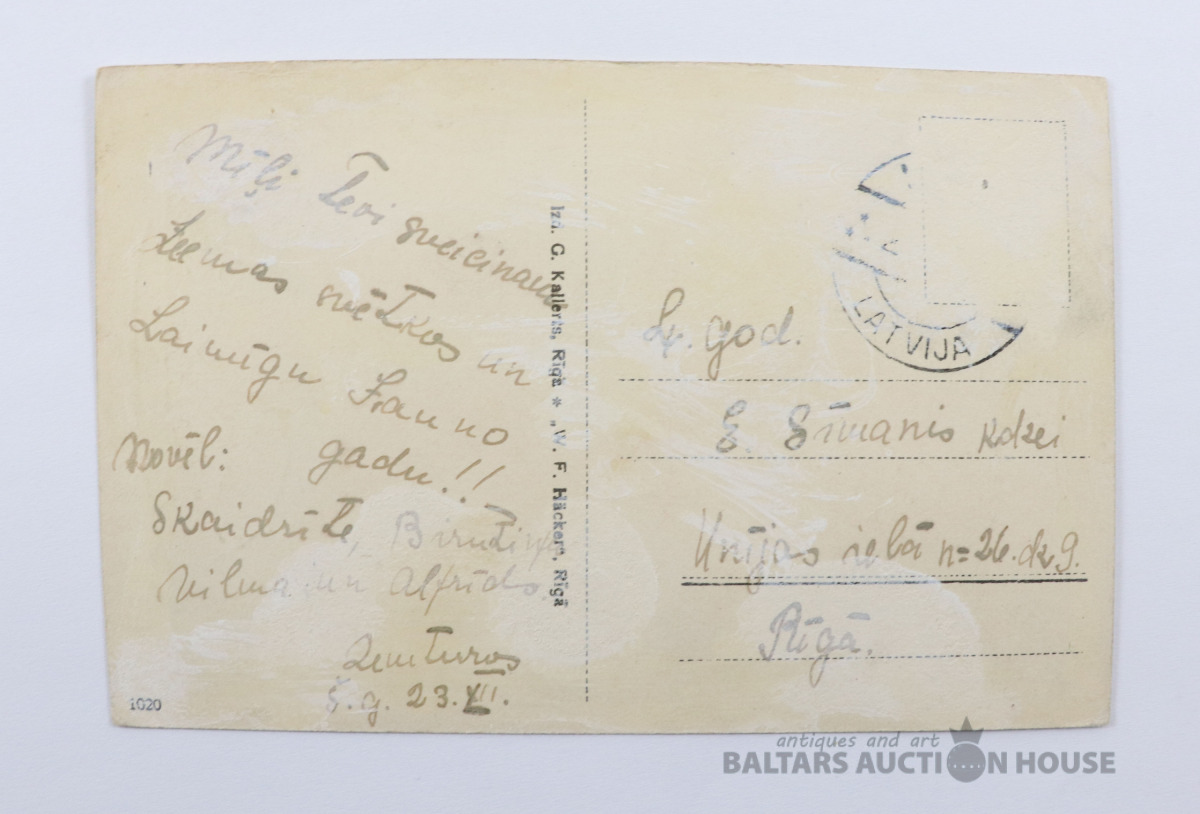 Mīļi Tevi sveicinam
Zeemas svētkos un
Laimīgu Jauno
gadu!!
Novēl:
Skaidrīte, Birutiņa
Vilma un Alfrīds
Zemturos
š.g. 23.XII.
1020
Izd. G. Kallerts, Rīgā * „W. F. Häckern, Rīgā
LATVIJA
Ļ. god.
E. Sīmanis kdzei
Unijas ielā n=26.dz 9.
Rīgā.
antiques and art
BALTARS AUCTION HOUSE